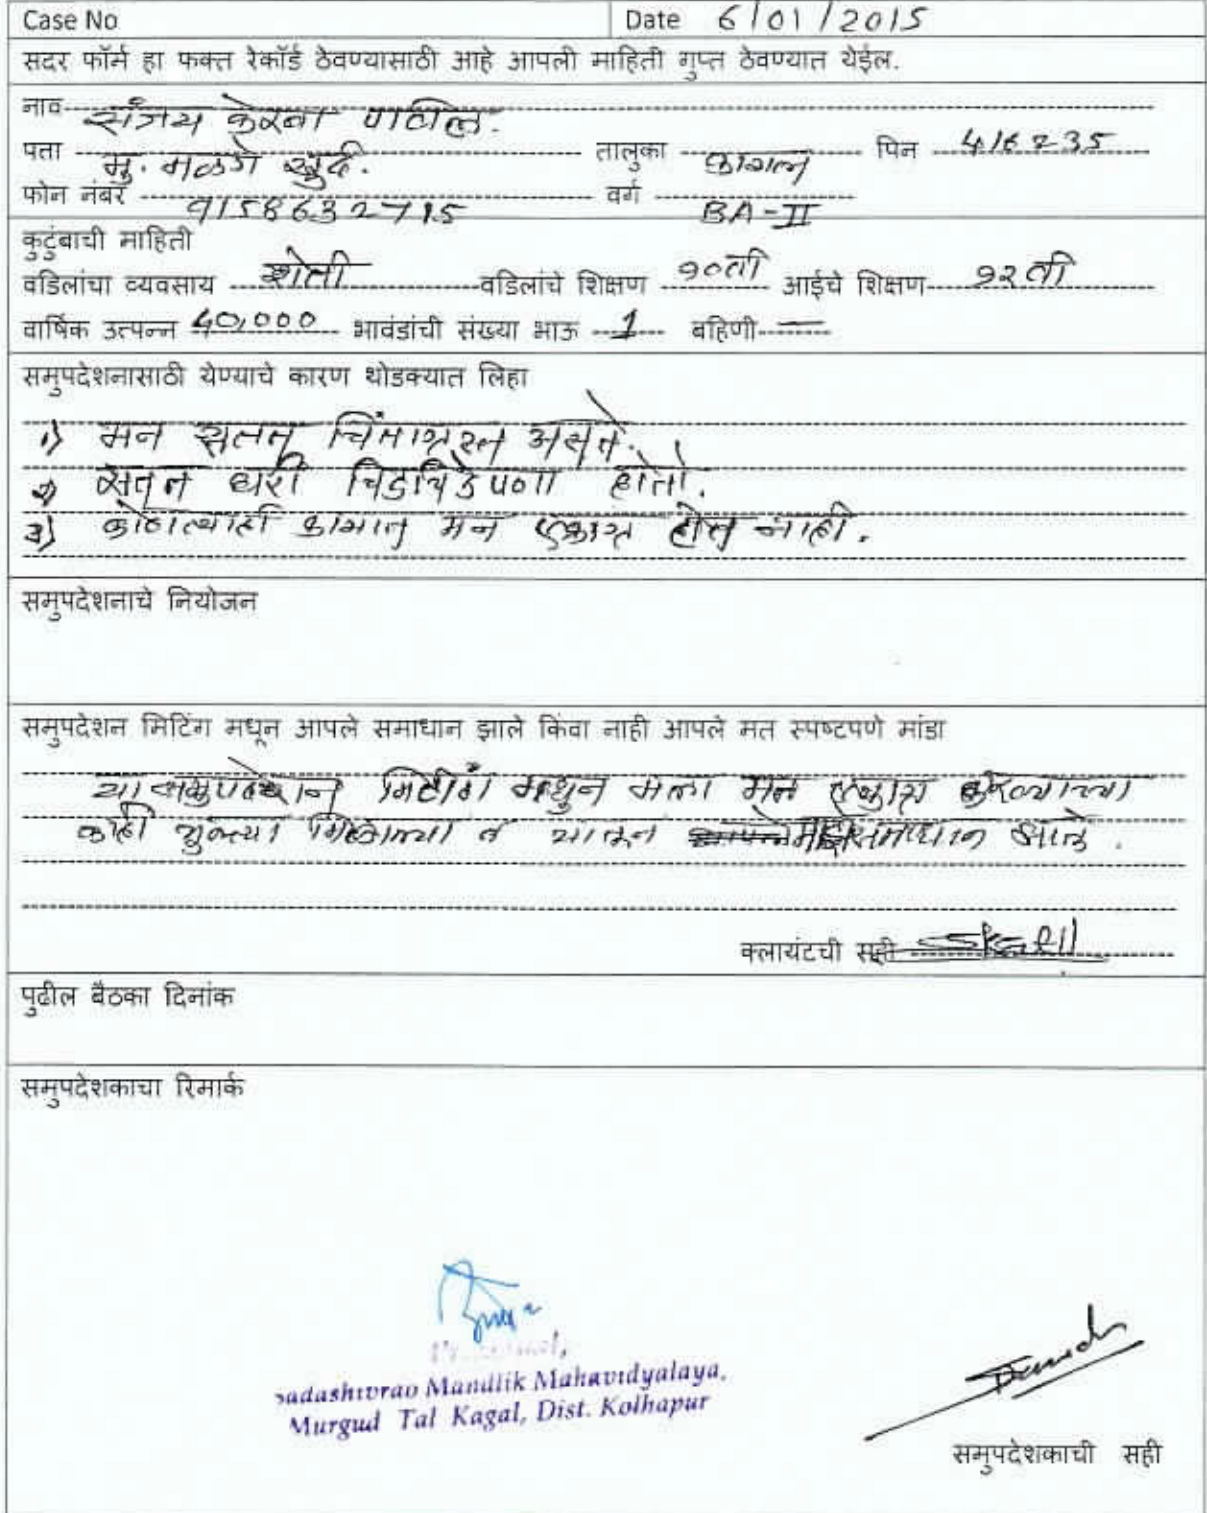 Case No Date 6/01/2015
सदर फॉर्म हा फक्त रेकॉर्ड ठेवण्यासाठी आहे आपली माहिती गुप्त ठेवण्यात येईल.
नाव संजय केरबा पाटील.
पत्ता मु. मळगे खुर्द. तालुका कागल पिन 416235
फोन नंबर 9158632715 वर्ग BA-II
कुटुंबाची माहिती
वडिलांचा व्यवसाय शेती वडिलांचे शिक्षण १०वी आईचे शिक्षण १२वी
वार्षिक उत्पन्न 40,000 भावंडांची संख्या भाऊ 1 बहिणी —
समुपदेशनासाठी येण्याचे कारण थोडक्यात लिहा
१) मन सतत चिंताग्रस्त असते.
२) सतत घरी चिडचिडेपणा होतो.
३) कोणत्याही कामात मन एकाग्र होत नाही.
समुपदेशनाचे नियोजन
समुपदेशन मिटिंग मधून आपले समाधान झाले किंवा नाही आपले मत स्पष्टपणे मांडा
या समुपदेशन मिटींग मधुन मला मन एकाग्र करण्याच्या
काही युक्त्या मिळाल्या व यातून माझे समाधान झाले.
क्लायंटची सही
पुढील बैठका दिनांक
समुपदेशकाचा रिमार्क
Sadashivrao Mandlik Mahavidyalaya,
Murgud Tal Kagal, Dist. Kolhapur
समुपदेशकाची सही